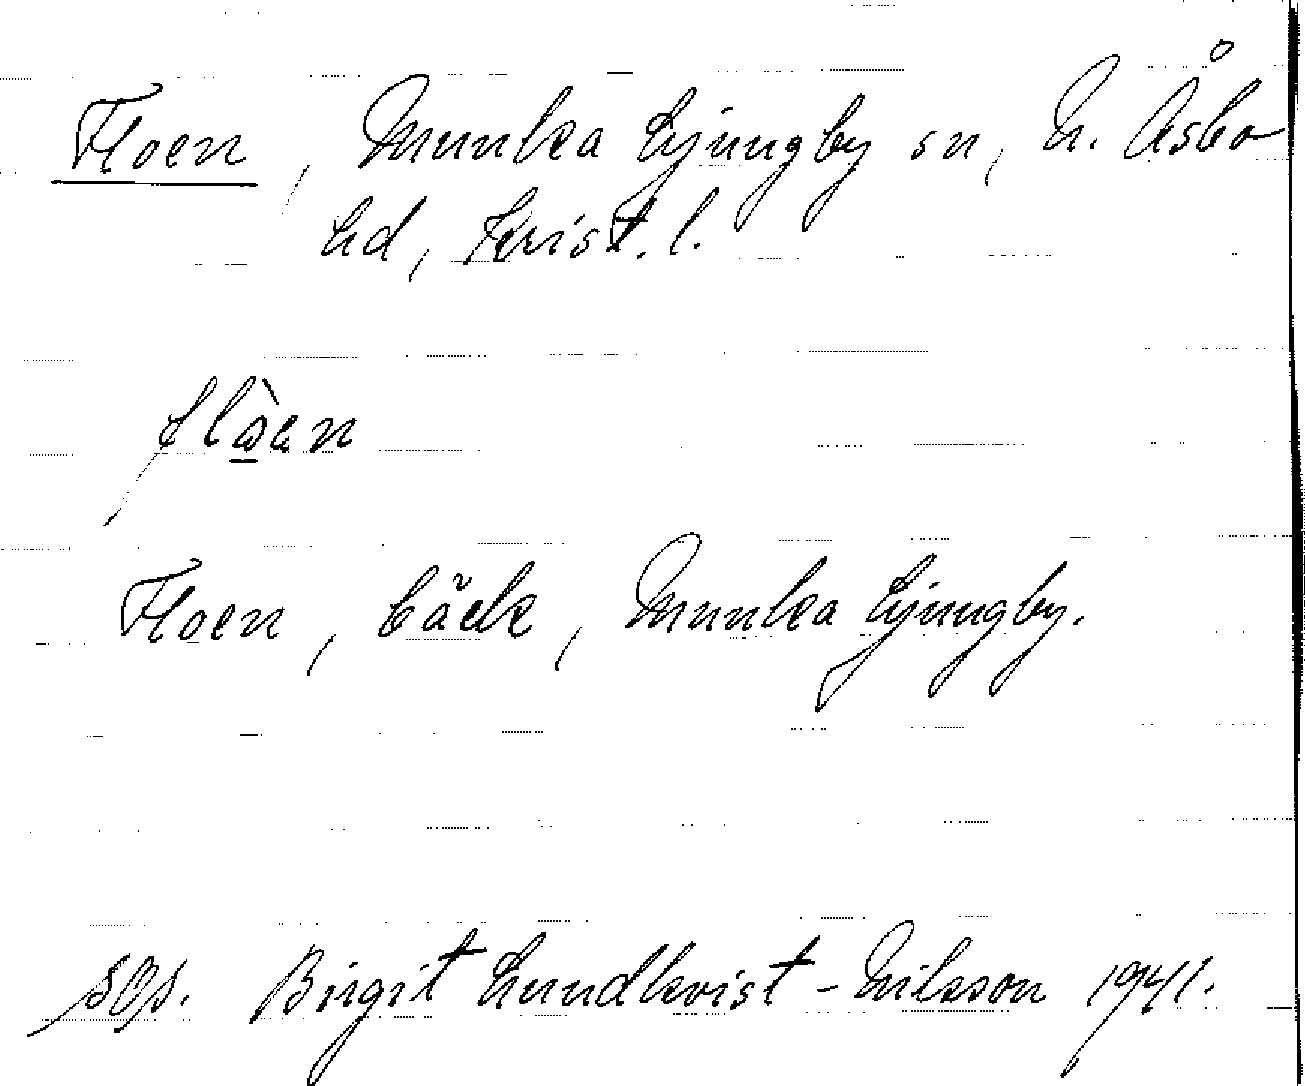 Floen, Munka Ljungby sn, N. Åsbo
hd, Krist. l.
flòen
Floen, bäck, Munka Ljungby.
Birgit Lundkvist-Nilsson 1941.